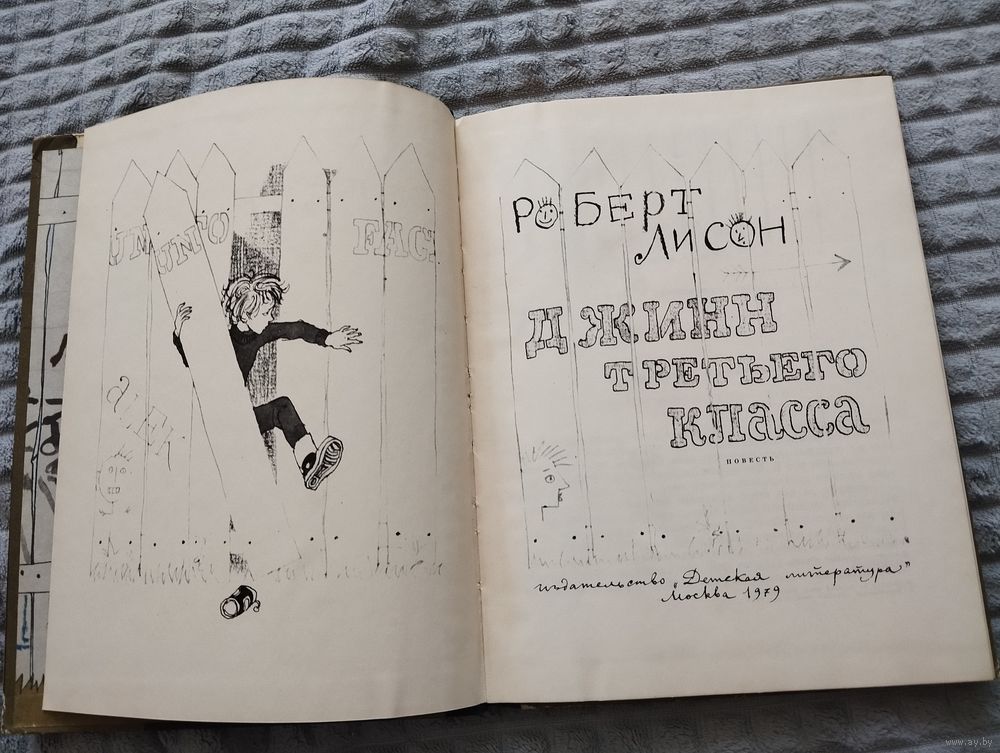 алек
РОБЕРТ
ЛИСОН
ДЖИНН
ТРЕТЬЕГО
КЛАССА
ПОВЕСТЬ
издательство „Детская литература"
Москва 1979
www.ay.by